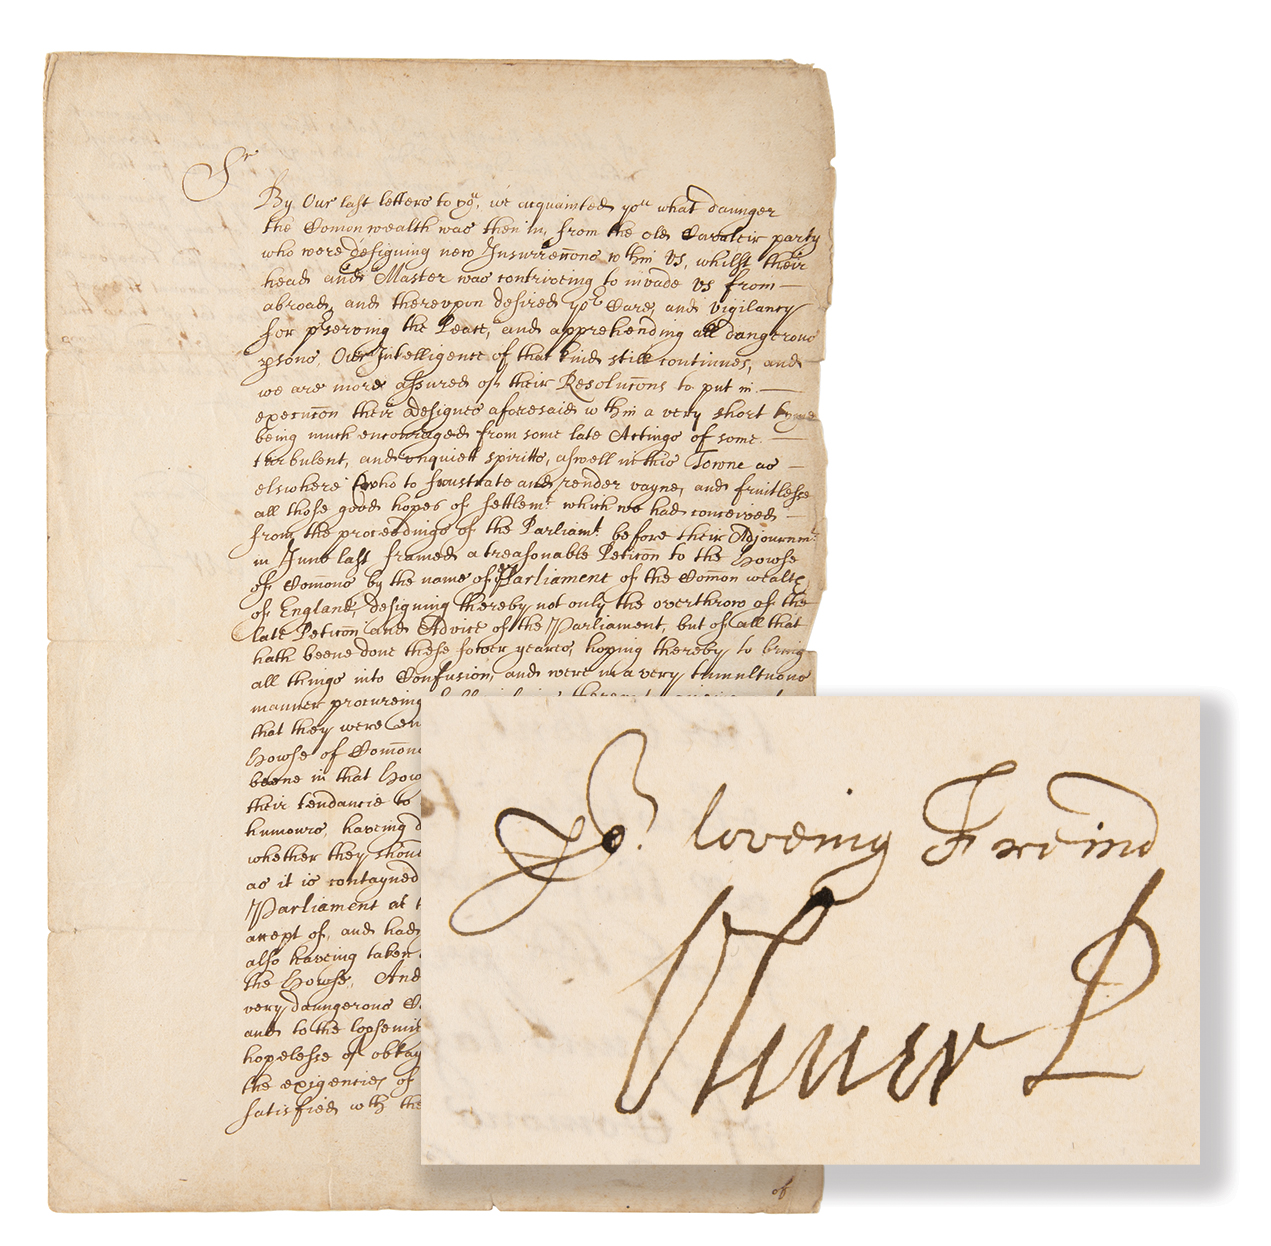 Sr
By Our last letters to you, we acquainted you what daunger
the Comonwealth was then in, from the old Cavaleir party
who were designing new Insurreccons wthin us, whilst their
head and Master was contriveing to invade us from —
abroad, and thereupon desired yor Care, and vigilancy
for pserving the Peace, and apprehending all dangerous
psons. Our Intelligence of that kind still continues, and
we are more assured of their Resolucons to put in —
execucon their designes aforesaid wthin a very short tyme
being much encouraged from some late Actings of some —
turbulent, and unquiett spiritts, aswell in this Towne as —
elswhere who to frustrate and render vayne, and fruitlesse
all those good hopes of settlemt which we had conceived —
from the proceedings of the Parliamt before their Adjournmt
in June last framed a treasonable Peticon to the Howse
of Comons by the name of Parliament of the Comon wealth
of England, designing thereby not only the overthrow of the
late Peticon and Advice of the Parliament, but of all that
hath beene done these fower yeares, hoping thereby to bring
all things into Confusion, and were in a very tumultuous
manner procureing
that they were
Howse of Comons
beene in that
their tendancie to
humours, having
whether they should
as it is contayned
Parliament at
accept of, and had
also haveing taken
the Howse, And
very daungerous
and to the
hopelesse of
the exigencies of
satisfied wth the
of
Yor loveing Freind
Oliver P